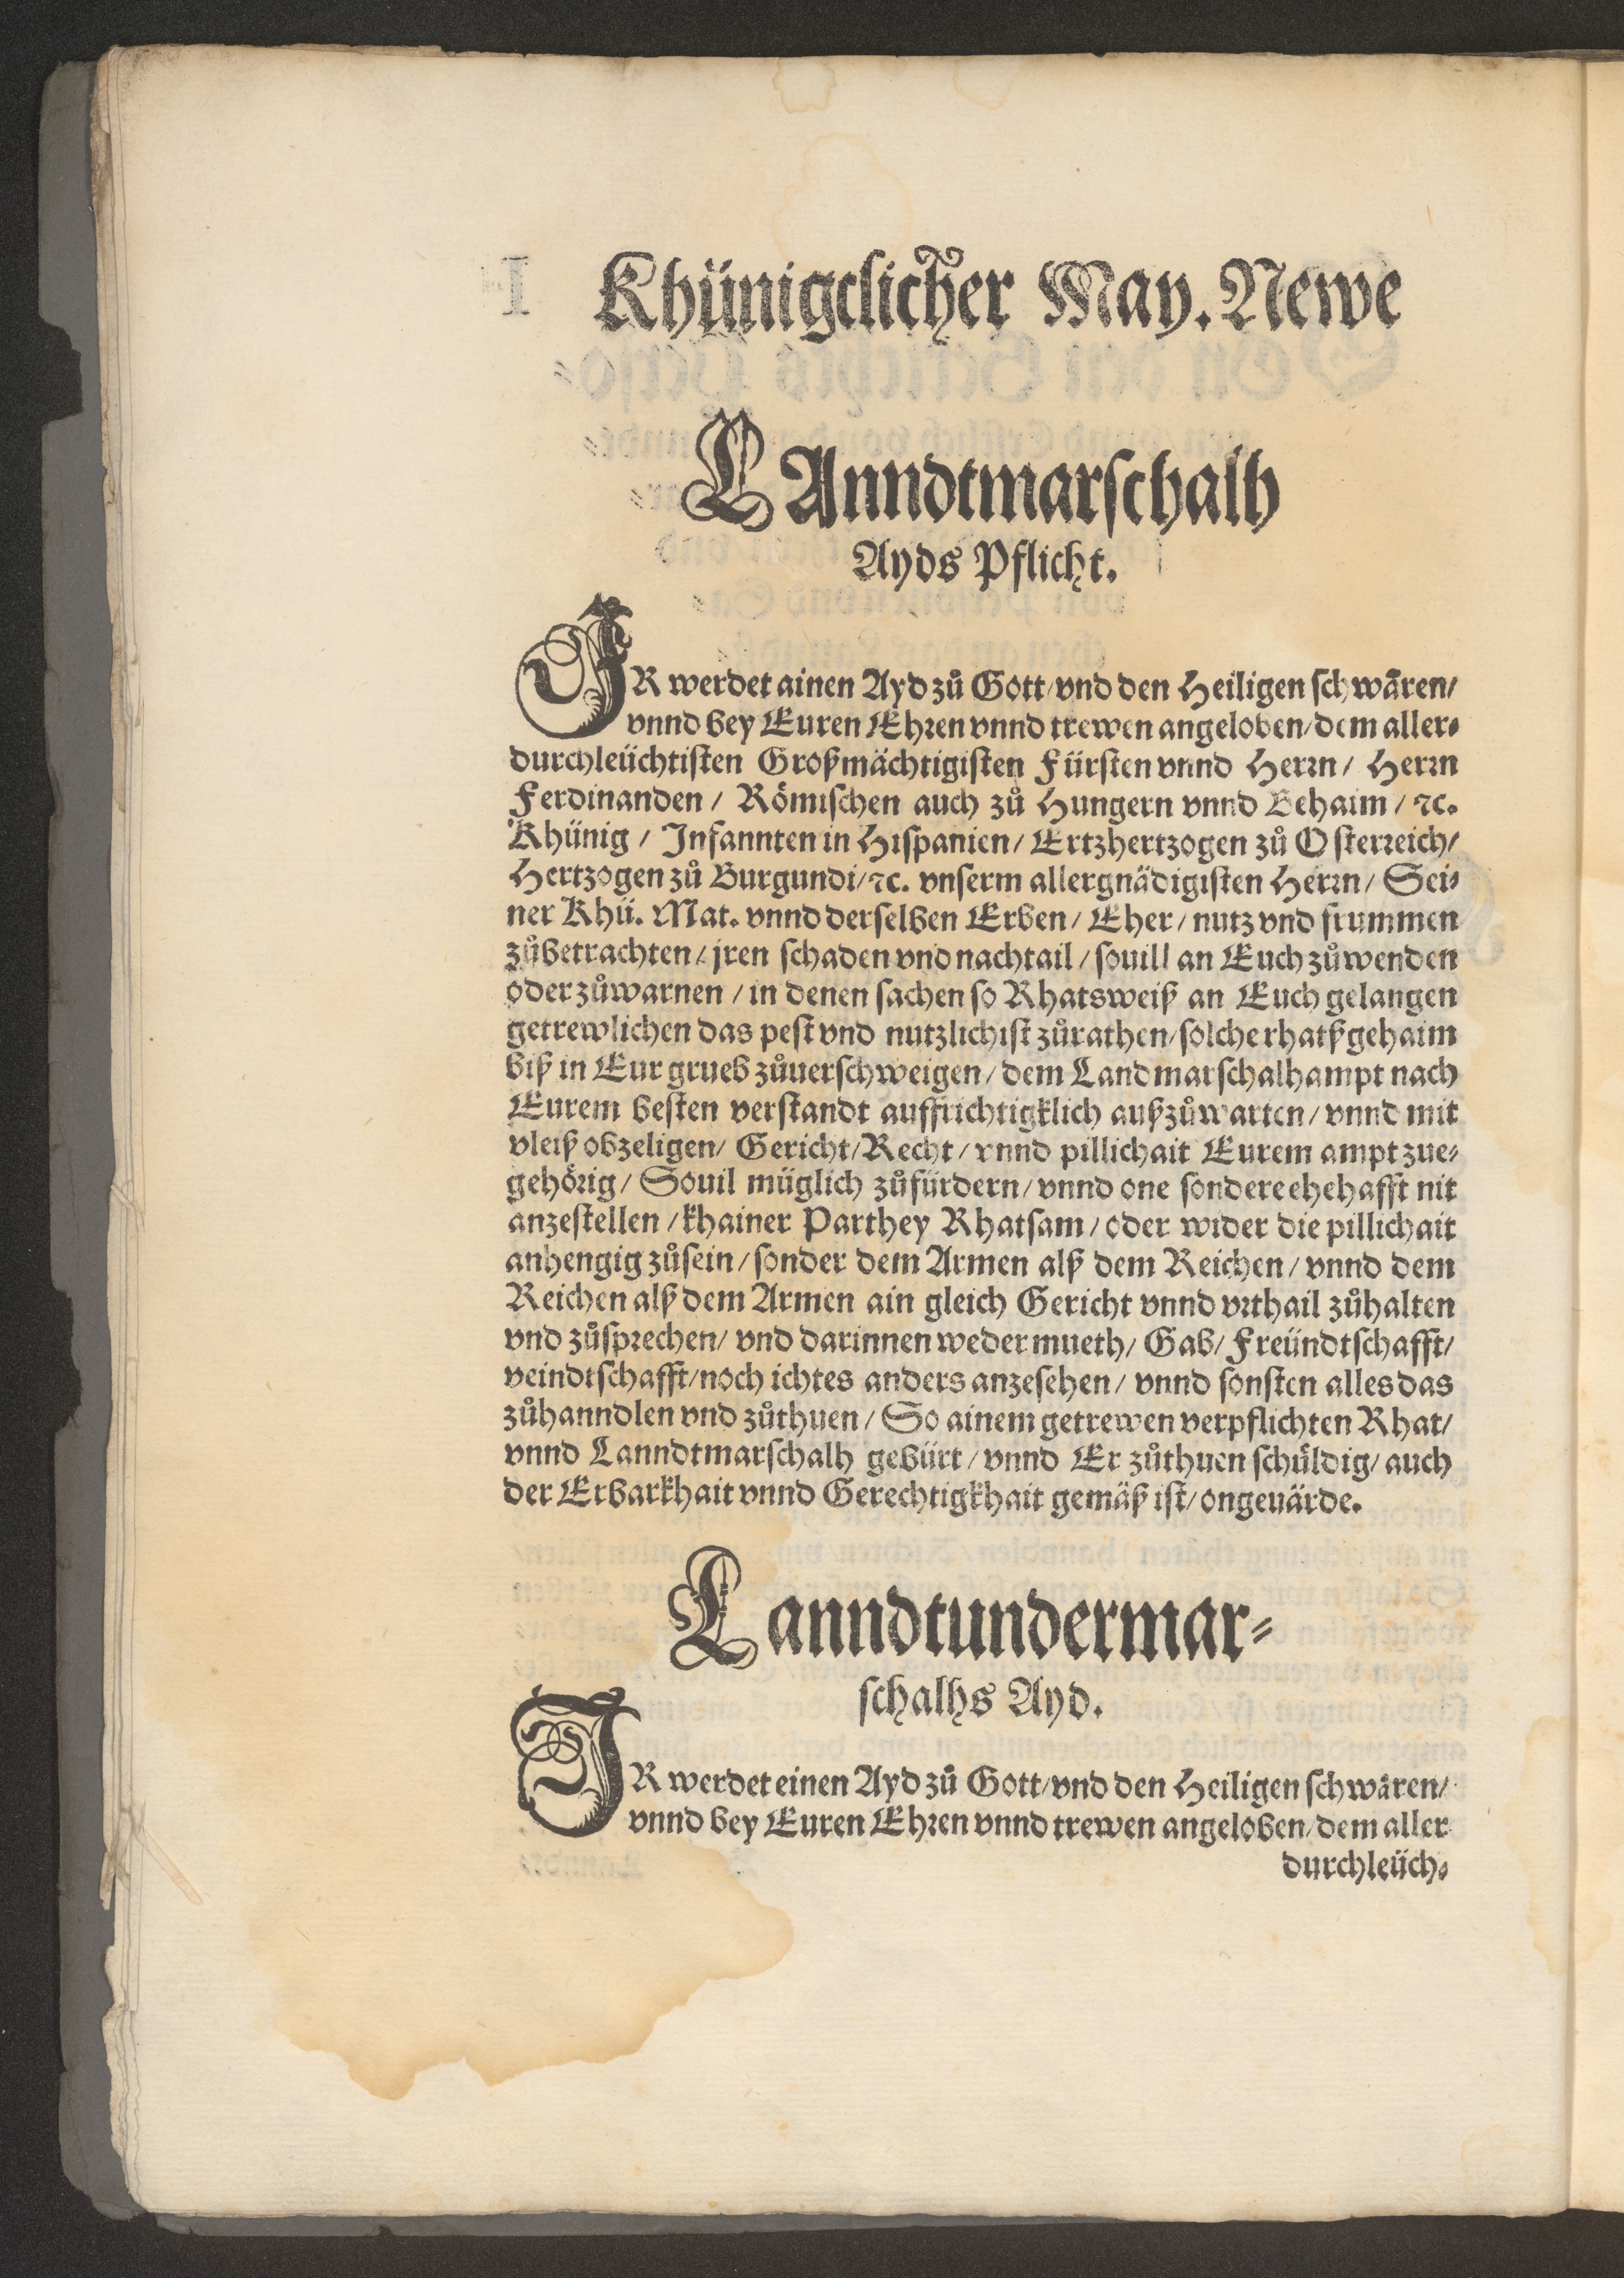 Khünigclicher May. Newe
LAnndtmarschalh
Ayds Pflicht.
IR werdet ainen Ayd zů Gott/vnd den Heiligen schwären/
vnnd bey Euren Ehren vnnd trewen angeloben/dem aller-
durchleüchtisten Großmächtigisten Fürsten vnnd Herrn/ Herrn
Ferdinanden/ Römischen auch zů Hungern vnnd Behaim/ ꝛc.
Khünig/ Infannten in Hispanien/ Ertzhertzogen zů Osterreich/
Hertzogen zů Burgundi/ꝛc. vnserm allergnädigisten Herrn/ Sei-
ner Khü. Mat. vnnd derselben Erben/ Eher/ nutz vnd frummen
zůbetrachten/ jren schaden vnd nachtail/ souill an Euch zůwenden
oder zůwarnen/ in denen sachen so Rhatsweiß an Euch gelangen
getrewlichen das pest vnd nutzlichist zůrathen/solche rhatßgehaim
biß in Eur grueb zůuerschweigen/ dem Landmarschalhampt nach
Eurem besten verstandt auffrichtigklich außzůwarten/ vnnd mit
vleiß obzeligen/ Gericht/Recht/ vnnd pillichait Eurem ampt zue-
gehörig/ Souil müglich zůfürdern/ vnnd one sondere ehehafft nit
anzestellen/ khainer Parthey Rhatsam/ oder wider die pillichait
anhengig zůsein/ sonder dem Armen alß dem Reichen/ vnnd dem
Reichen alß dem Armen ain gleich Gericht vnnd vrthail zůhalten
vnd zůsprechen/ vnd darinnen weder mueth/ Gab/ Freündtschafft/
veindtschafft/noch ichtes anders anzesehen/ vnnd sonsten alles das
zůhanndlen vnd zůthuen/ So ainem getrewen verpflichten Rhat/
vnnd Lanndtmarschalh gebürt/ vnnd Er zůthuen schüldig/ auch
der Erbarkhait vnnd Gerechtigkhait gemäß ist/ ongeuärde.
Lanndtundermar-
schalhs Ayd.
IR werdet einen Ayd zů Gott/vnd den Heiligen schwären/
vnnd bey Euren Ehren vnnd trewen angeloben/dem aller
durchleüch-